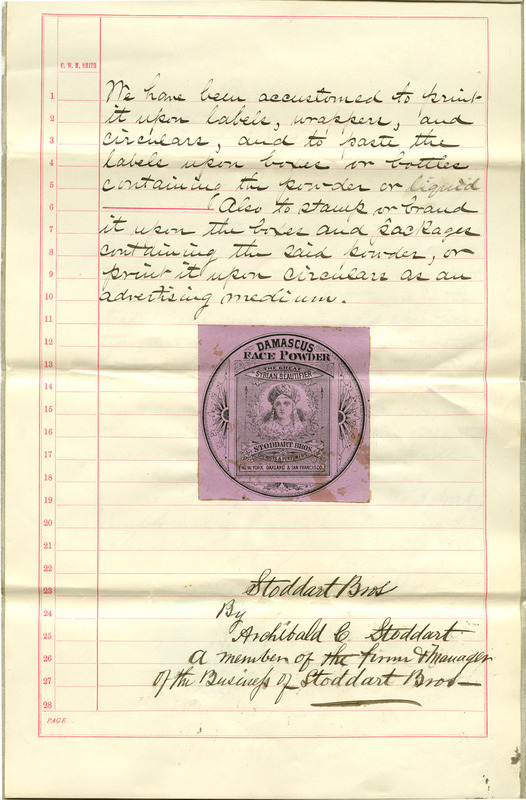 C. W. M. SMITH
1 We have been accustomed to print
2 it upon labels, wrappers, and
3 circulars, and to paste the
4 labels upon boxes or bottles
5 containing the powder or liquid
6 Also to stamp or brand
7 it upon the boxes and packages
8 containing the said powder, or
9 print it upon circulars as an
10 advertising medium.
11
12
13
14
15
16
17
18
19
20
21
22
23
24
25
26
27
28
DAMASCUS
FACE POWDER
THE GREAT
SYRIAN BEAUTIFIER
STODDART BROS.
NEW YORK, OAKLAND & SAN FRANCISCO.
Stoddart Bros
By
Archibald C Stoddart
a member of the firm & Manager
of the Business of Stoddart Bros
PAGE